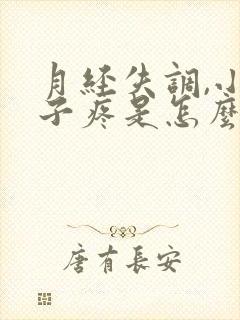 月经失調,小
子疼是怎麼
唐有長安